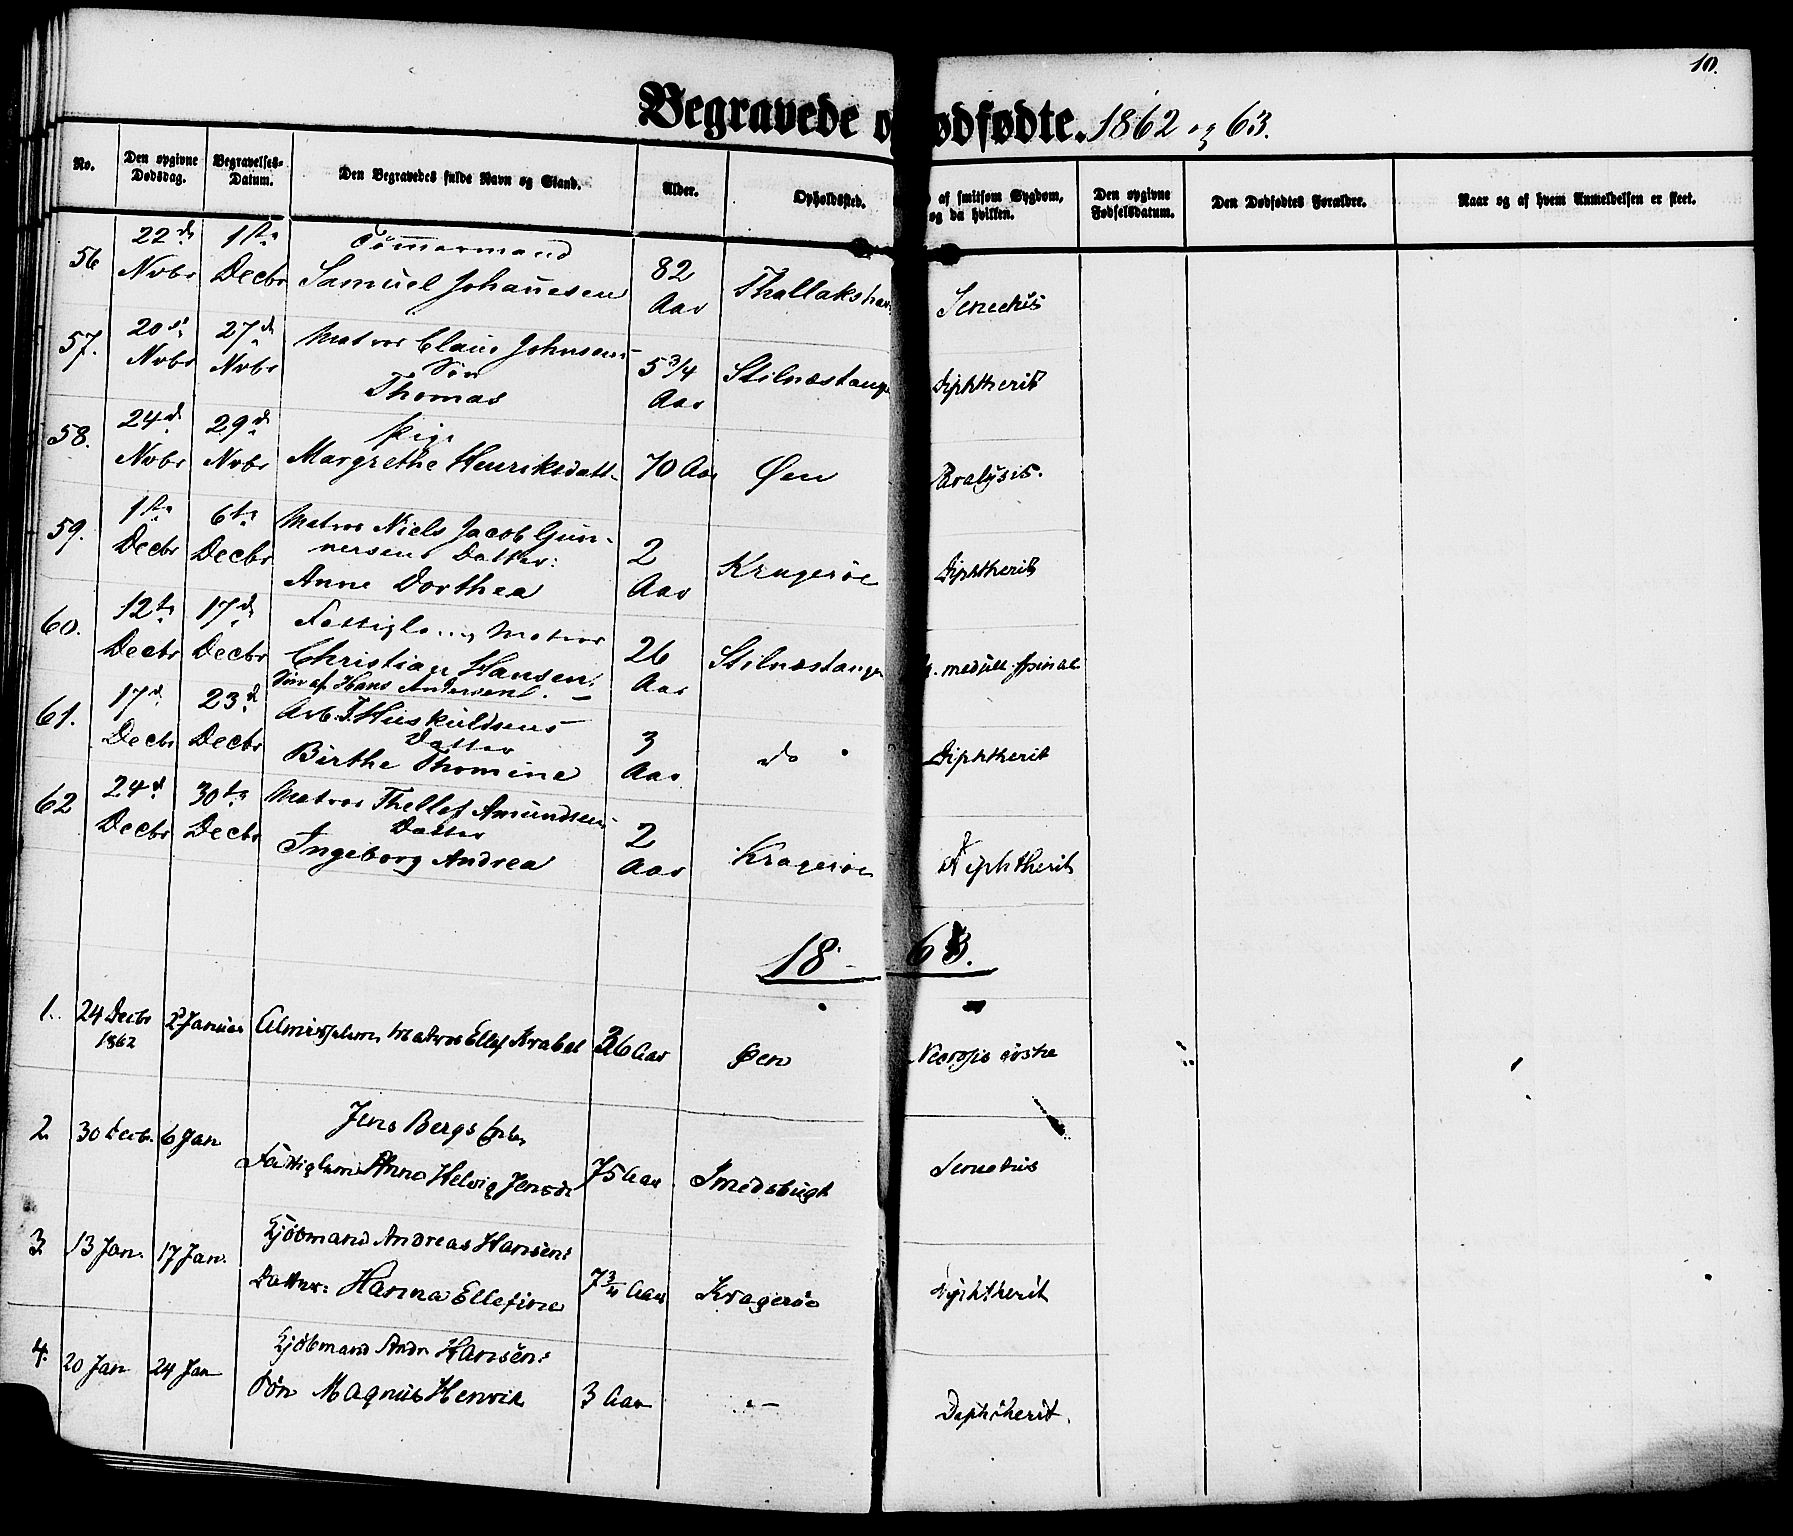 10.
Begravede o ødfødte. 1862 og 63.
No. Den opgivne Dødsdag. Begravelses-Datum. Den Begravedes fulde Navn og Stand. Alder. Opholdssted. af smitsom Sygdom, og da hvilken. Den opgivne Fødselsdatum. Den Dødfødtes Forældre. Naar og af hvem Anmeldelsen er skeet.
56 22de Novbr 1ste Decbr Tömmermand
Samuel Johannesen 82 Aar
57. 20de Novbr 27de Novbr Matros Claus Johnsens
Søn
Thomas 5 3/4 Aar Stilnæstange Diphtherit
58. 24de Novbr 29de Novbr Pige
Margrethe Henriksdatt. 70 Aar Øen Paralysis.
59. 1ste Decbr 6te Decbr Matros Niels Jacob Gun-
nersens Datter:
Anne Dorthea 2 Aar Kragerøe Diphtherit
60. 12te Decbr 17de Decbr Matros
Christian Hansen 26 Aar Stilnæstange medull. spinal
Søn af Hans Andersen
61. 17de Decbr 23de Decbr Arb.
Datter
Birthe Thomine 3 Aar do Diphtherit
62 24de Decbr 30te Decbr Matros Thellef Amundsens
Datter
Ingeborg Andrea 2 Aar Kragerøe Diphtherit
18 - 63.
1. 24 Decbr 1862 2 Januar Almisselem Matros Ellef 36 Aar Øen Necrosis
2. 30 Decb. 6 Jan Jens Bergs Enke
Fattiglem Anne Helvig Jensd. 75 Aar Smedsbugt
3. 13 Jan. 17 Jan. Kjöbmand Andreas Hansens
Datter: Hanna Ellefine 7 3/4 Aar Kragerøe Dyphtherit
4. 20 Jan 24 Jan Kjöbmand Andr Hansens
Søn Magnus Henrik 3 Aar - Dyphtherit.